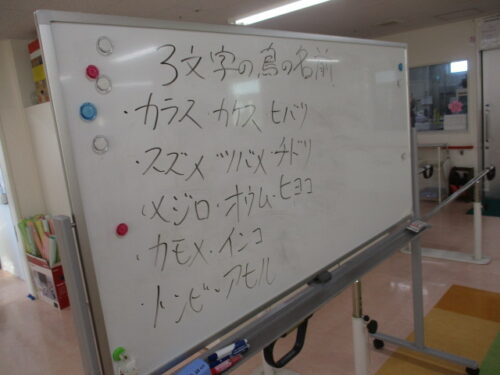 3文字の鳥の名前
・カラス カケス ヒバリ
・スズメ ツバメ・チドリ
・メジロ・オウム・ヒヨコ
・カモメ・インコ
・トンビ・アヒル